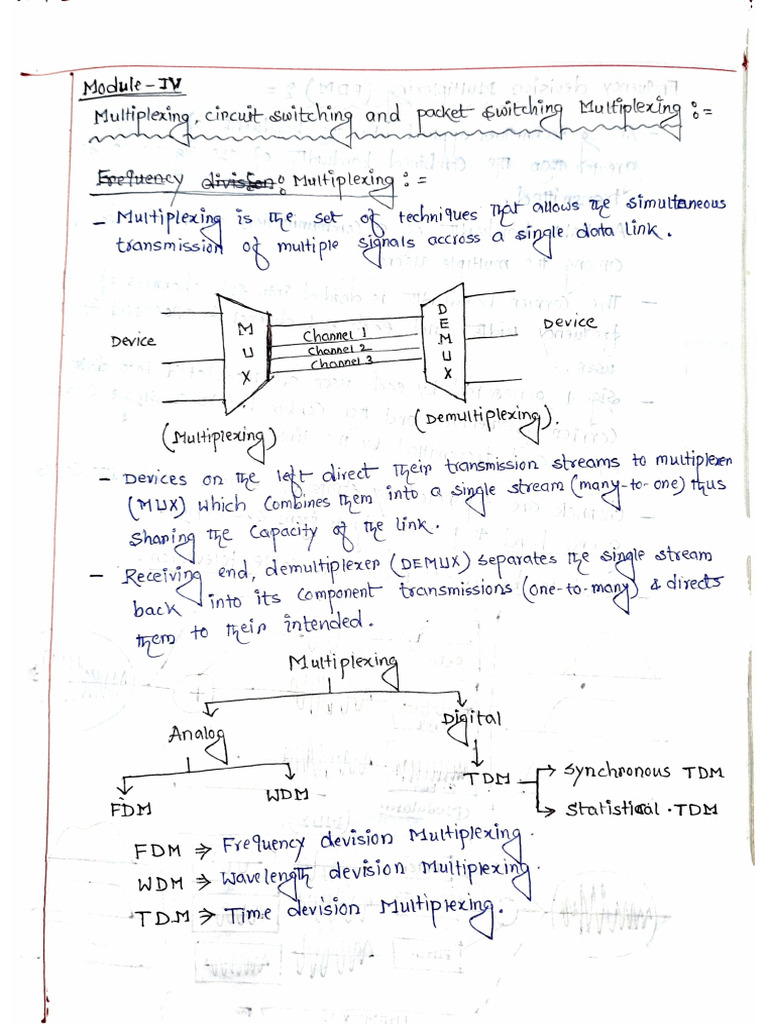 Module-IV
Multiplexing, circuit switching and packet switching Multiplexing :=
Frequency division : Multiplexing :=
- Multiplexing is the set of techniques that allows the simultaneous
transmission of multiple signals accross a single data link.
Device
MUX
Channel 1
Channel 2
Channel 3
DEMUX
Device
(Multiplexing)
(Demultiplexing).
- Devices on the left direct their transmission streams to multiplexer
(MUX) which combines them into a single stream (many-to-one) thus
sharing the capacity of the link.
- Receiving end, demultiplexer (DEMUX) separates the single stream
back into its component transmissions (one-to-many) & directs
them to their intended.
Multiplexing
Analog
Digital
FDM
WDM
TDM
Synchronous TDM
Statistical . TDM
FDM ⇒ Frequency devision Multiplexing.
WDM ⇒ Wavelength devision Multiplexing.
TDM ⇒ Time devision Multiplexing.